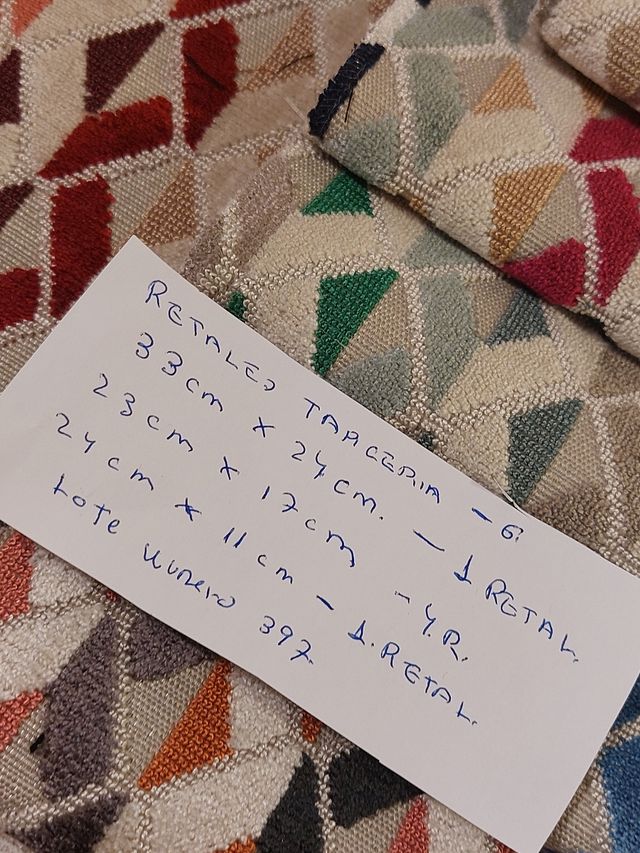 RETALES TAPCERIA - 6:
33 cm x 24 cm. - 1 RETAL.
23 cm x 17 cm - 4.R.
24 cm x 11 cm - 1. RETAL.
Lote Numero 397.